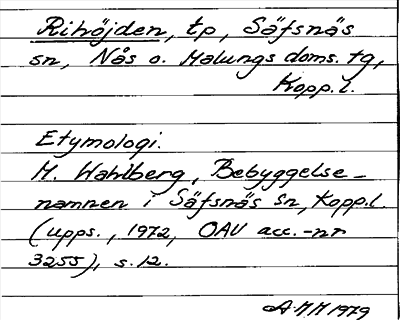 Rihöjden, tp, Säfsnäs
sn, Nås o. Malungs doms. tg,
Kopp.l.
Etymologi.
M. Wahlberg, Bebyggelse-
namnen i Säfsnäs sn, Kopp.l.
(Upps., 1972, OAU acc.-nr
3255), s.12.
AMM 1979